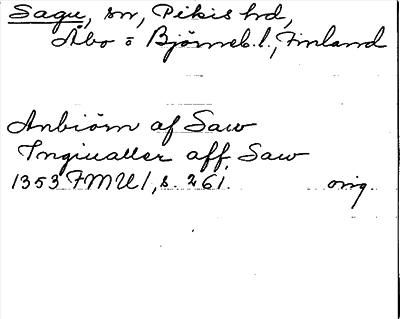 Sagu, sn, Pikis hd,
Åbo o Björneb. l., Finland
Anbiörn af Saw
Ingiualler aff Saw
1353 FMU 1, s. 261. orig.